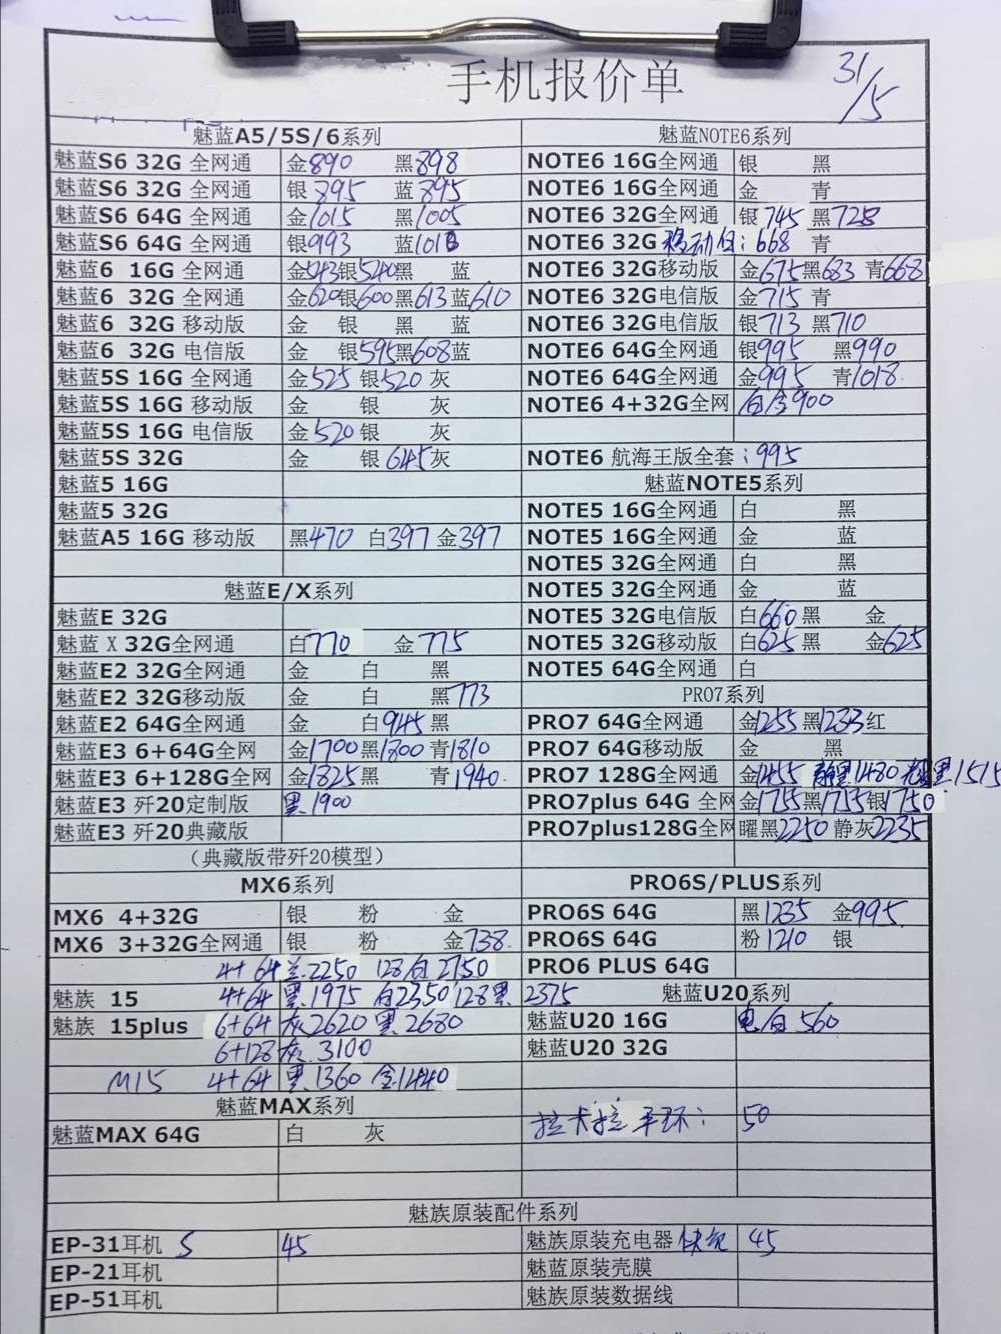 手机报价单
31/5
魅蓝A5/5S/6系列
魅蓝S6 32G 全网通 金890 黑898
魅蓝S6 32G 全网通 银895 蓝895
魅蓝S6 64G 全网通 金1015 黑1005
魅蓝S6 64G 全网通 银993 蓝101
魅蓝6 16G 全网通 金543银540黑 蓝
魅蓝6 32G 全网通 金620银600黑613蓝610
魅蓝6 32G 移动版 金 银 黑 蓝
魅蓝6 32G 电信版 金 银595黑608蓝
魅蓝5S 16G 全网通 金525 银520 灰
魅蓝5S 16G 移动版 金 银 灰
魅蓝5S 16G 电信版 金520银 灰
魅蓝5S 32G 金 银645灰
魅蓝5 16G
魅蓝5 32G
魅蓝A5 16G 移动版 黑470 白397 金397
魅蓝E/X系列
魅蓝E 32G
魅蓝X 32G全网通 白770 金775
魅蓝E2 32G全网通 金 白 黑
魅蓝E2 32G移动版 金 白 黑773
魅蓝E2 64G全网通 金 白945黑
魅蓝E3 6+64G全网 金1700黑1800青1810
魅蓝E3 6+128G全网 金1825黑 青1940.
魅蓝E3 歼20定制版 黑.1900
魅蓝E3 歼20典藏版
（典藏版带歼20模型）
MX6系列
MX6 4+32G 银 粉 金
MX6 3+32G全网通 银 粉 金738.
4+64 兰.2250 128白2750
魅族 15 4+64 黑.1975 白2350 128黑.2375
魅族 15plus 6+64 灰2620 黑.2680
6+128灰.3100
M15 4+64 黑.1360 金1440
魅蓝MAX系列
魅蓝MAX 64G 白 灰
魅蓝NOTE6系列
NOTE6 16G全网通 银 黑
NOTE6 16G全网通 金 青
NOTE6 32G全网通 银745 黑728
NOTE6 32G 移动白：668 青
NOTE6 32G移动版 金675黑683 青668
NOTE6 32G电信版 金715 青
NOTE6 32G电信版 银713 黑710
NOTE6 64G全网通 银995 黑990
NOTE6 64G全网通 金995 青1018.
NOTE6 4+32G全网 白金900
NOTE6 航海王版全套：995
魅蓝NOTE5系列
NOTE5 16G全网通 白 黑
NOTE5 16G全网通 金 蓝
NOTE5 32G全网通 白 黑
NOTE5 32G全网通 金 蓝
NOTE5 32G电信版 白660黑 金
NOTE5 32G移动版 白625黑 金625
NOTE5 64G全网通 白
PRO7系列
PRO7 64G全网通 金1255黑1233红
PRO7 64G移动版 金 黑
PRO7 128G全网通 金1455 静黑1480 黑1515
PRO7plus 64G 全网 金1755黑1755银1750
PRO7plus128G全网 曜黑2250 静灰2235
PRO6S/PLUS系列
PRO6S 64G 黑1235 金995.
PRO6S 64G 粉1210 银
PRO6 PLUS 64G
魅蓝U20系列
魅蓝U20 16G 电白560
魅蓝U20 32G
拉卡拉手环： 50
魅族原装配件系列
EP-31耳机 S 45 魅族原装充电器 快充 45
EP-21耳机 魅蓝原装壳膜
EP-51耳机 魅族原装数据线